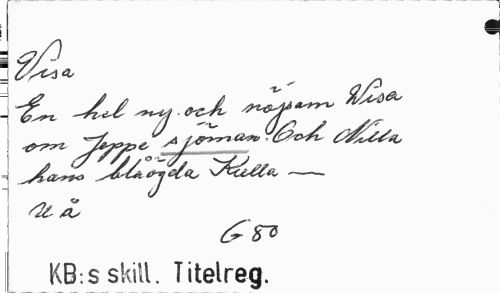 Visa
En hel ny och nöjsam Wisa
om Jeppe sjöman. Och Nilla
hans blåögda Kulla —
u å
G 80
KB:s skill. Titelreg.